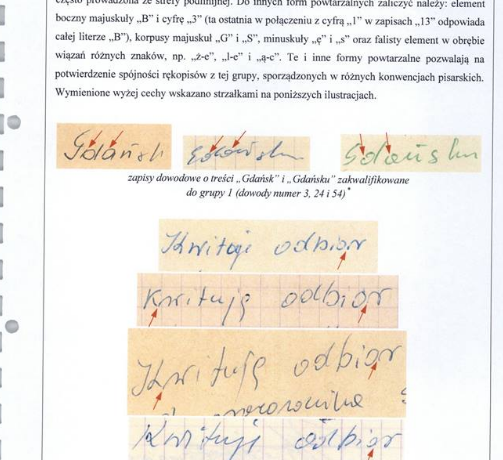 często prowadzona ze strefy podlinijnej. Do innych form powtarzalnych zaliczyć należy: element
boczny majuskuły „B” i cyfrę „3” (ta ostatnia w połączeniu z cyfrą „1” w zapisach „13” odpowiada
całej literze „B”), korpusy majuskuł „G” i „S”, minuskuły „ę” i „s” oraz falisty element w obrębie
wiązań różnych znaków, np. „ż-e”, „l-e” i „ą-c”. Te i inne formy powtarzalne pozwalają na
potwierdzenie spójności rękopisów z tej grupy, sporządzonych w różnych konwencjach pisarskich.
Wymienione wyżej cechy wskazano strzałkami na poniższych ilustracjach.
Gdańsk Gdańsku Gdańsku
zapisy dowodowe o treści „Gdańsk” i „Gdańsku” zakwalifikowane
do grupy 1 (dowody numer 3, 24 i 54)*
Kwituję odbior
Kwituję odbior
Kwituję odbior
Kwituję odbior